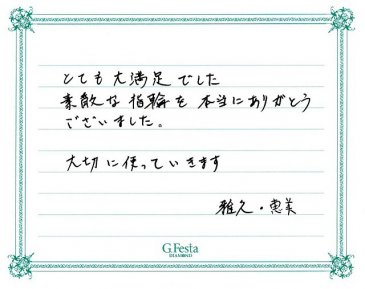 とても大満足でした
素敵な指輪を本当にありがとう
ございました。
大切に使っていきます
雅久・恵美
G.Festa
DIAMOND